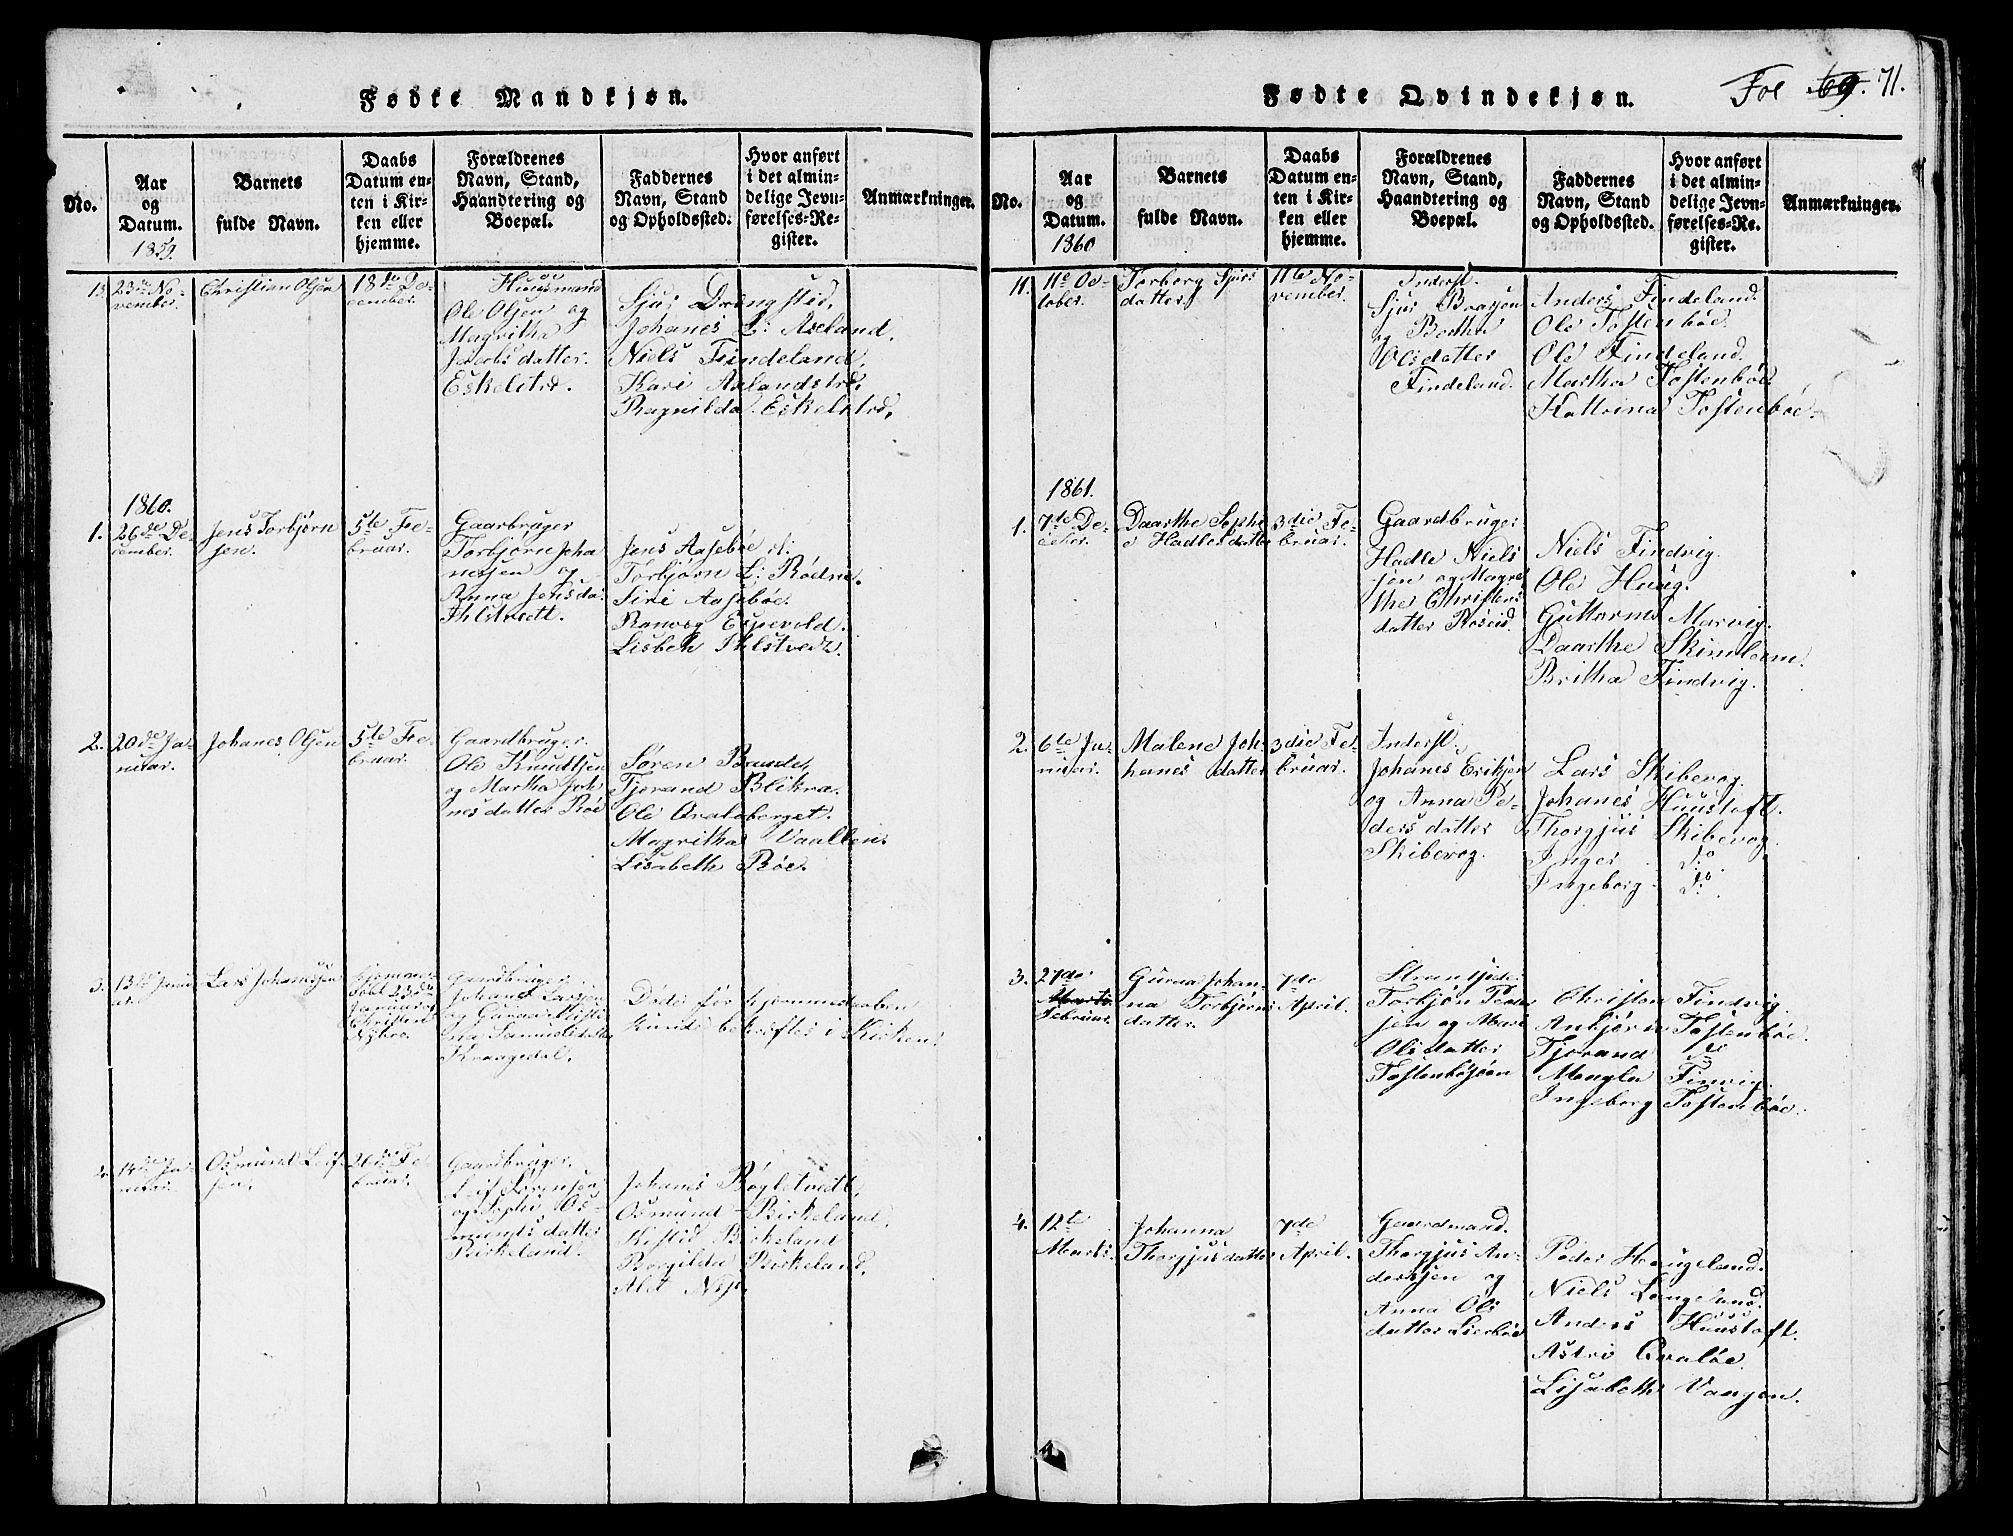 Fødte Mandkjøn.
No.
Aar
og
Datum.
1859.
Barnets
fulde Navn.
Daabs
Datum en-
ten i Kir-
ken eller
hjemme.
Forældrenes
Navn, Stand,
Haandtering og
Boepæl.
Faddernes
Navn, Stand
og Opholdssted.
Hvor anført
i det almin-
delige Jevn-
førelses-Re-
gister.
Anmærkninger.
13.
23de No-
vember.
Christian Olsen
18de De-
cember.
Huusmand
Ole Olsen og
Magritha
Jacobsdatter.
Eskelstrø.
Sjur Drengstid,
Johanes L: Axeland.
Niels Findeland,
Kari Aalandstrø,
Ragnilda Eskelstrø,
1860.
1.
26de De-
cember.
Jens Torbjørn
sen.
5te Fe-
bruar.
Gaarbruger
Torbjørn Joha
nessen og
Anna Jensda:
Ihlstvedt.
Jens Aasebøe
Torbjørn L: Rødne.
Siri Aasebøe.
Ranveg Espevold.
Lisbeth Ihlstvedt.
2.
20de Ja-
nuar.
Johanes Olsen
5te Fe-
bruar.
Gaardbruger.
Ole Knuttsen
og Martha Joh
nesdatter Røe
Søren
Tjerand Blikra.
Ole Qvaleberget.
Magritha Vaallen.
Lisabeth Røe.
3.
13de Janu
ar.
Lars Johanesen
Hjemme-
døbt 23de
Januar af
Christen
Nybro.
Gaardbruger
Johanes Larsen
og
na Samuelsdatter
Kraagedal.
Døde før hjemmedaaben
kunde bekræftes i Kirken.
4.
14de Ja-
nuar.
Osmund Leif-
sen.
26de Fe-
bruar.
Gaardbruger.
Leif Sørensen,
og Sophi Os-
mundsdatter
Birkeland.
Johanes Røgletvedt,
Osmund Birkeland,
Kistid Birkeland
Borgilda Birkeland,
Alet
Fødte Qvindekjøn.
Fol 69. 71.
No.
Aar
og
Datum.
1860
Barnets
fulde Navn.
Daabs
Datum en-
ten i Kir-
ken eller
hjemme.
Forældrenes
Navn, Stand,
Haandtering og
Boepæl.
Faddernes
Navn, Stand
og Opholdssted.
Hvor anført
i det almin-
delige Jevn-
førelses-Re-
gister.
Anmærkninger.
11.
11e Oc-
tober.
Torborg Sjurs
datter,
11te No-
vember.
Inderst.
Sjur Brasen
og Berthe
Olsdatter
Findeland.
Anders Findeland.
Ole Tostenbøe.
Ole Findeland.
Martha Tostenbøe.
Kattrina Tostenbøe.
1861.
1.
7de De-
cember.
Daarthe Sophi
e Hadlesdatter
3die Fe-
bruar.
Gaardbruger
Hadle Niels
sen og Magre
the Christens
datter Røseid.
Niels Findvig.
Ole Huug.
Guttorm Marvig.
Daarthe
Britha Findvig.
2.
6te Ja-
nuar.
Malene Joh-
hanes datter
3die Fe-
bruar.
Inderst.
Johanes Eriksen
og Anna Pe-
ders datter
Skibevog.
Lars Skibevog.
Johanes Huustoft.
Thorgjus Skibevog.
Inger do
Ingeborg. do.
3.
27de
Marts
Februar.
Gurina Johan-
na Torbjørns
datter.
7de
April.
Strandsider
Torbjøn Peder
sen og Mari
Olsdatter
Tostenbøsøen
Christen Findvig.
Anbjør Tostenbøe.
Tjorand do
Mangla Finvig.
Ingeborg Tostenbøe.
4.
12te
Marts.
Johanna
Thorgjusdatter
7de
April.
Gaardmand.
Thorgjus An-
dersen og
Anna Ols
datter Lierbøe
Peder Haugeland.
Niels Langeland.
Anders Huustoft.
Astri Qvaløe.
Lisabeth Vangen.